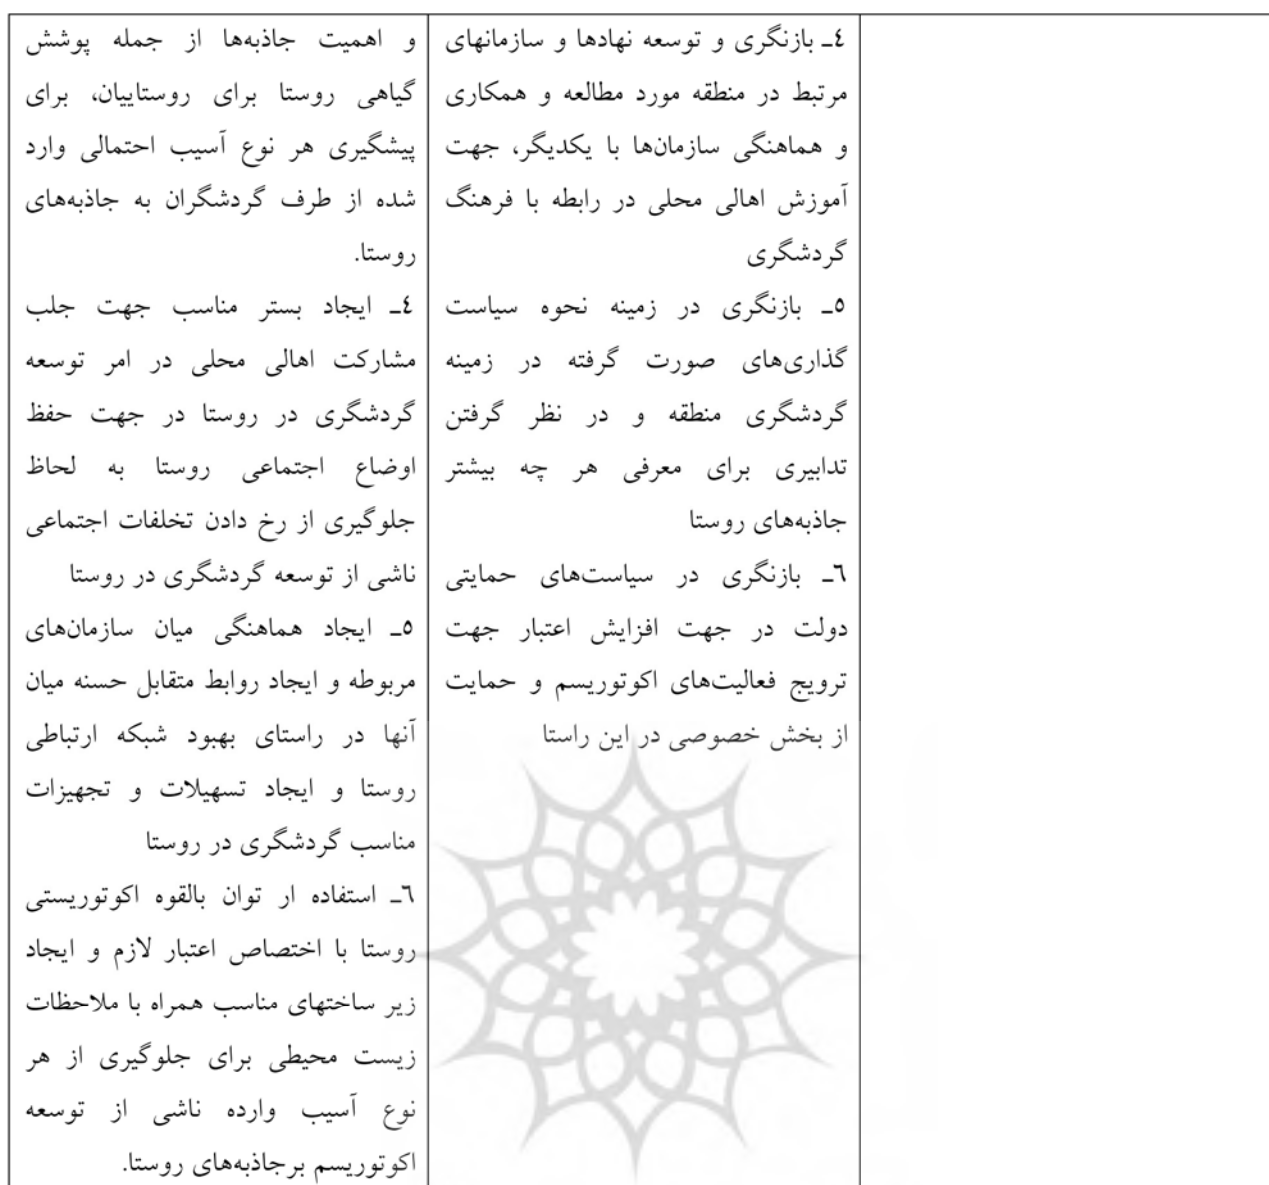 ٤ـ بازنگری و توسعه نهادها و سازمانهای
مرتبط در منطقه مورد مطالعه و همکاری
و هماهنگی سازمان‌ها با یکدیگر، جهت
آموزش اهالی محلی در رابطه با فرهنگ
گردشگری
٥ـ بازنگری در زمینه نحوه سیاست
گذاری‌های صورت گرفته در زمینه
گردشگری منطقه و در نظر گرفتن
تدابیری برای معرفی هر چه بیشتر
جاذبه‌های روستا
٦ـ بازنگری در سیاست‌های حمایتی
دولت در جهت افزایش اعتبار جهت
ترویج فعالیت‌های اکوتوریسم و حمایت
از بخش خصوصی در این راستا
و اهمیت جاذبه‌ها از جمله پوشش
گیاهی روستا برای روستاییان، برای
پیشگیری هر نوع آسیب احتمالی وارد
شده از طرف گردشگران به جاذبه‌های
روستا.
٤ـ ایجاد بستر مناسب جهت جلب
مشارکت اهالی محلی در امر توسعه
گردشگری در روستا در جهت حفظ
اوضاع اجتماعی روستا به لحاظ
جلوگیری از رخ دادن تخلفات اجتماعی
ناشی از توسعه گردشگری در روستا
٥ـ ایجاد هماهنگی میان سازمان‌های
مربوطه و ایجاد روابط متقابل حسنه میان
آنها در راستای بهبود شبکه ارتباطی
روستا و ایجاد تسهیلات و تجهیزات
مناسب گردشگری در روستا
٦ـ استفاده ار توان بالقوه اکوتوریستی
روستا با اختصاص اعتبار لازم و ایجاد
زیر ساختهای مناسب همراه با ملاحظات
زیست محیطی برای جلوگیری از هر
نوع آسیب وارده ناشی از توسعه
اکوتوریسم برجاذبه‌های روستا.